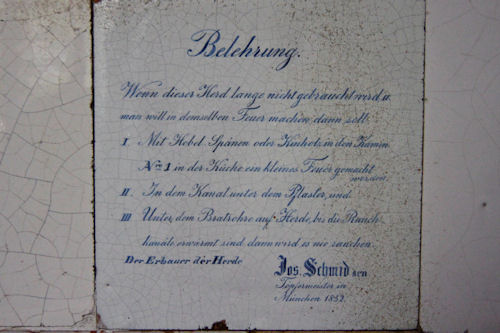 Belehrung.
Wenn dieser Herd lange nicht gebraucht wird u.
man will in demselben Feuer machen, dann soll:
I. Mit Hobel Spänen oder Kuiholz, in den Kamin
No 1 in der Küche ein kleines Feuer gemacht
werden.
II. In dem Kanal unter dem Pflaster, und
III. Unter, dem Bratrohre auf Herde, bis die Rauch-
kanäle erwärmt sind, dann wird es nie rauchen.
Der Erbauer der Herde
Jos. Schmid sen
Topfermeister in
München 1852.